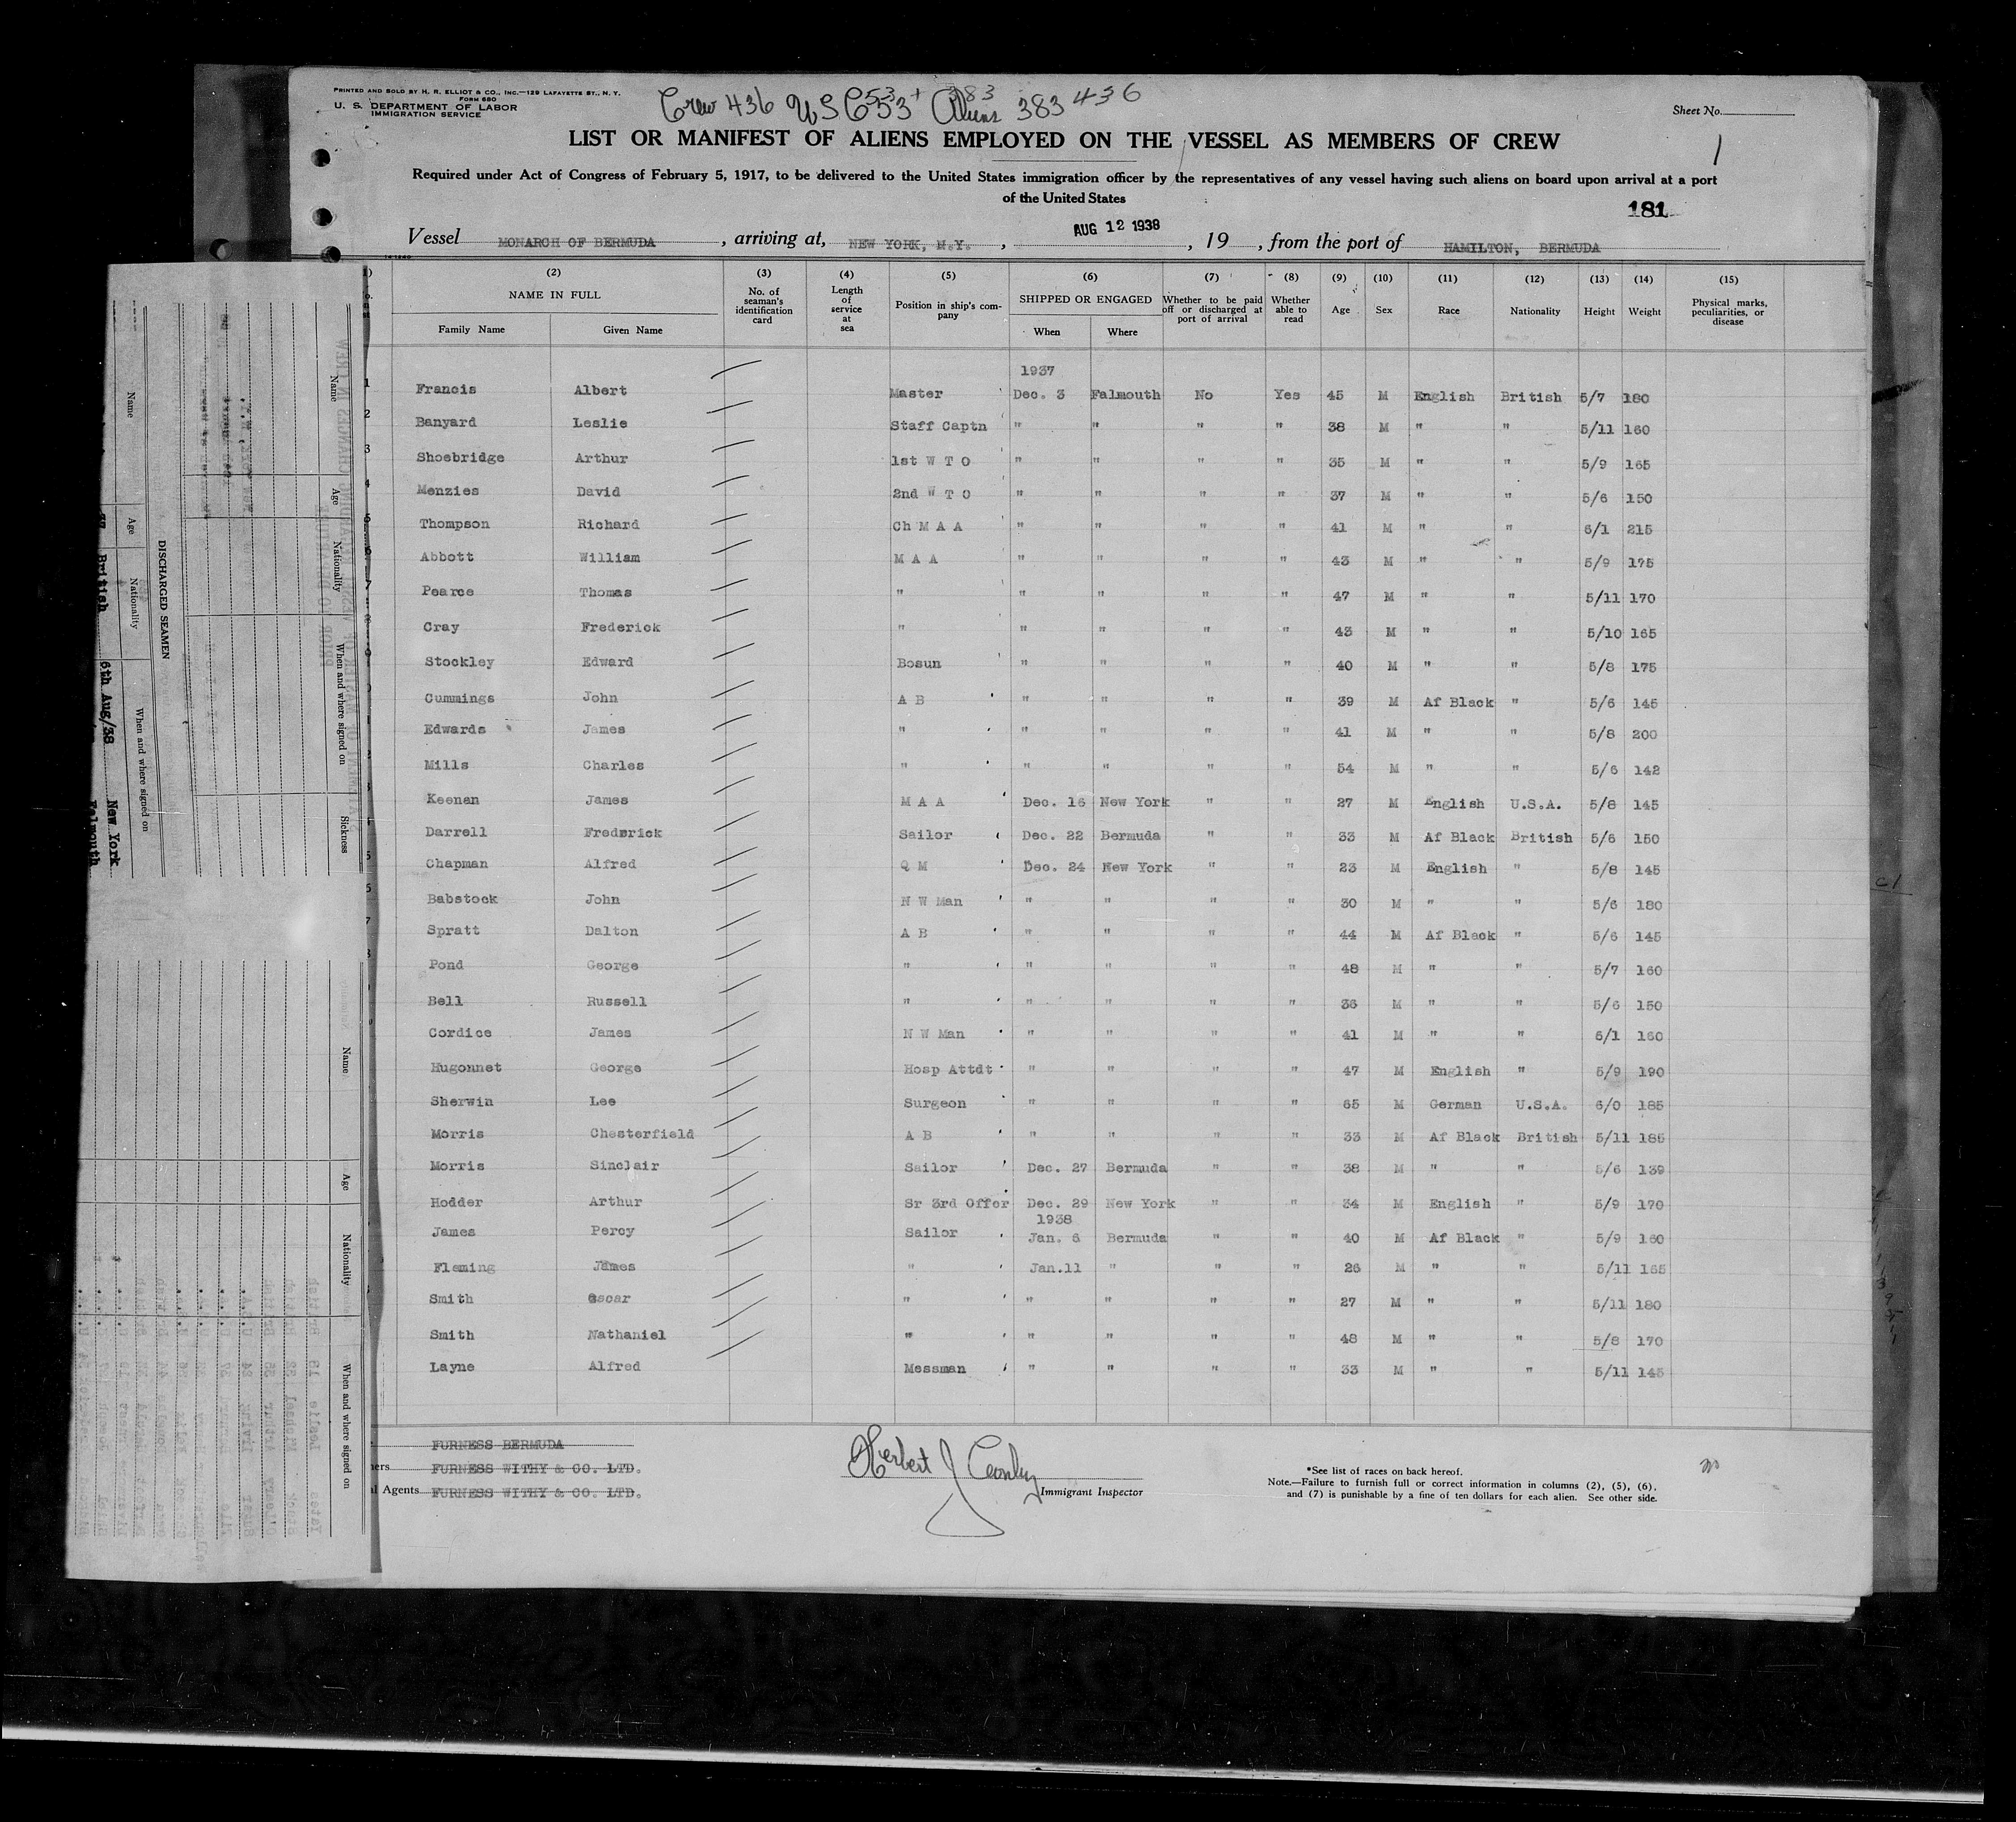 PRINTED AND SOLD BY H. R. ELLIOT & CO., INC.—129 LAFAYETTE ST., N. Y.
FORM 680
U. S. DEPARTMENT OF LABOR
IMMIGRATION SERVICE
Crew 436 USC 53 Aliens 383 436
53 + 383
Sheet No.
1
LIST OR MANIFEST OF ALIENS EMPLOYED ON THE VESSEL AS MEMBERS OF CREW
Required under Act of Congress of February 5, 1917, to be delivered to the United States immigration officer by the representatives of any vessel having such aliens on board upon arrival at a port
of the United States
181
Vessel MONARCH OF BERMUDA, arriving at, NEW YORK, N.Y., AUG 12 1938, 19, from the port of HAMILTON, BERMUDA
(2) (3) (4) (5) (6) (7) (8) (9) (10) (11) (12) (13) (14) (15)
NAME IN FULL Family Name Given Name No. of seaman's identification card Length of service at sea Position in ship's company SHIPPED OR ENGAGED When Where Whether to be paid off or discharged at port of arrival Whether able to read Age Sex Race Nationality Height Weight Physical marks, peculiarities, or disease
1937
1 Francis Albert Master Dec. 3 Falmouth No Yes 45 M English British 5/7 180
2 Banyard Leslie Staff Captn " " " " 38 M " " 5/11 160
3 Shoebridge Arthur 1st W T O " " " " 35 M " " 5/9 165
4 Menzies David 2nd W T O " " " " 37 M " " 5/6 150
5 Thompson Richard Ch M A A " " " " 41 M " " 6/1 215
Abbott William M A A " " " " 43 M " " 5/9 175
7 Pearce Thomas " " " " " 47 M " " 5/11 170
Cray Frederick " " " " " 43 M " " 5/10 165
Stockley Edward Bosun " " " " 40 M " " 5/8 175
Cummings John A B " " " " 39 M Af Black " 5/6 145
Edwards James " " " " " 41 M " " 5/8 200
Mills Charles " " " " " 54 M " " 5/6 142
Keenan James M A A Dec. 16 New York " " 27 M English U.S.A. 5/8 145
Darrell Frederick Sailor Dec. 22 Bermuda " " 33 M Af Black British 5/6 150
Chapman Alfred Q M Dec. 24 New York " " 23 M English " 5/8 145
Babstock John N W Man " " " " 30 M " " 5/6 180
Spratt Dalton A B " " " " 44 M Af Black " 5/6 145
Pond George " " " " " 48 M " " 5/7 160
Bell Russell " " " " " 36 M " " 5/6 150
Cordice James N W Man " " " " 41 M " " 5/1 160
Hugonnet George Hosp Attdt " " " " 47 M English " 5/9 190
Sherwin Lee Surgeon " " " " 65 M German U.S.A. 6/0 185
Morris Chesterfield A B " " " " 33 M Af Black British 5/11 185
Morris Sinclair Sailor Dec. 27 Bermuda " " 38 M " " 5/6 139
Hodder Arthur Sr 3rd Offcr Dec. 29 New York " " 34 M English " 5/9 170
1938
James Percy Sailor Jan. 6 Bermuda " " 40 M Af Black " 5/9 160
Fleming James " Jan.11 " " " 26 M " " 5/11 165
Smith Oscar " " " " " 27 M " " 5/11 180
Smith Nathaniel " " " " " 48 M " " 5/8 170
Layne Alfred Messman " " " " 33 M " " 5/11 145
FURNESS BERMUDA
FURNESS WITHY & CO. LTD.
Agents FURNESS WITHY & CO. LTD.
Immigrant Inspector
*See list of races on back hereof.
Note.—Failure to furnish full or correct information in columns (2), (5), (6),
and (7) is punishable by a fine of ten dollars for each alien. See other side.
Name Age Nationality When and where signed on Sickness
DISCHARGED SEAMEN
Name Age Nationality When and where signed on
British 6th Aug/38 New York
Falmouth
Name Age Nationality When and where signed on